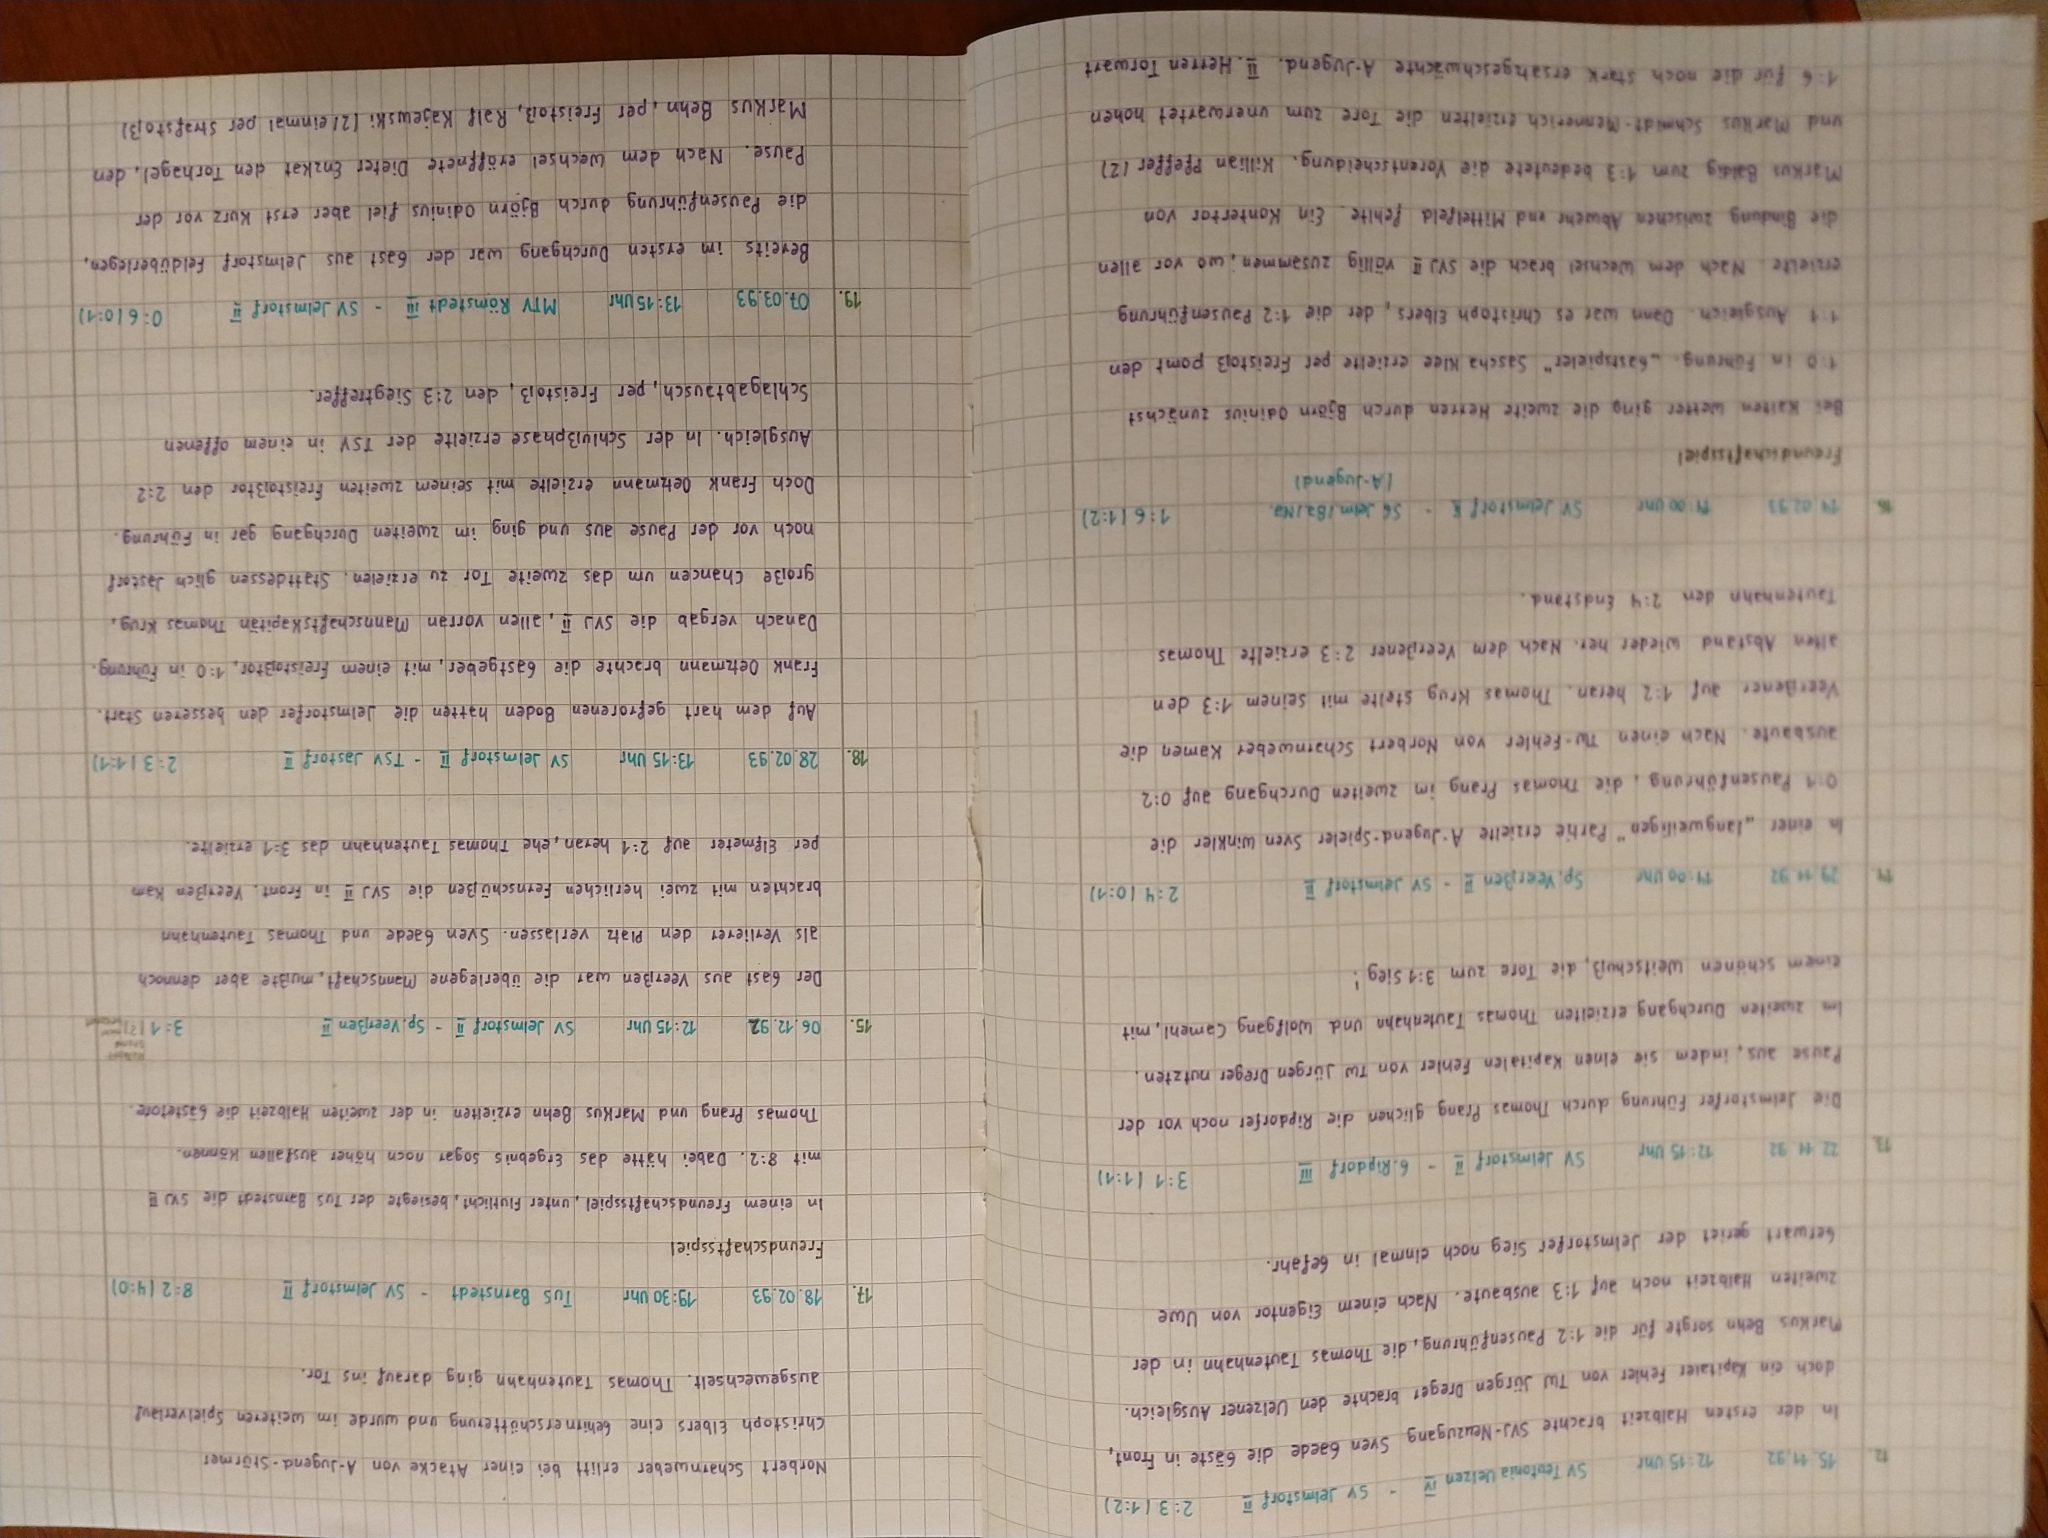 12. 15.11.92 12:15 Uhr SV Teutonia Uelzen IV - SV Jelmstorf II 2:3 (1:2)
In der ersten Halbzeit brachte SVJ-Neuzugang Sven Gaede die Gäste in Front,
doch ein kapitaler Fehler von TW Jürgen Dreger brachte den Uelzener Ausgleich.
Markus Behn sorgte für die 1:2 Pausenführung, die Thomas Tautenhahn in der
zweiten Halbzeit noch auf 1:3 ausbaute. Nach einem Eigentor von Uwe
Gerwart geriet der Jelmstorfer Sieg noch einmal in Gefahr.
13. 22.11.92 12:15 Uhr SV Jelmstorf II - G. Ripdorf III 3:1 (1:1)
Die Jelmstorfer Führung durch Thomas Prang glichen die Ripdorfer noch vor der
Pause aus, indem sie einen kapitalen Fehler von TW Jürgen Dreger nutzten.
Im zweiten Durchgang erzielten Thomas Tautenhahn und Wolfgang Camehl, mit
einem schönen Weitschuß, die Tore zum 3:1 Sieg!
14. 29.11.92 14:00 Uhr Sp. Veerßen II - SV Jelmstorf II 2:4 (0:1)
In einer „langweiligen" Partie erzielte A-Jugend-Spieler Sven Winkler die
0:1 Pausenführung, die Thomas Prang im zweiten Durchgang auf 0:2
ausbaute. Nach einen TW-Fehler von Norbert Scharnweber kamen die
Veerßener auf 1:2 heran. Thomas Krug stellte mit seinem 1:3 den
alten Abstand wieder her. Nach dem Veerßener 2:3 erzielte Thomas
Tautenhahn den 2:4 Endstand.
16. 14.02.93 14:00 Uhr SV Jelmstorf II - SG Jelm/Ba/Na. 1:6 (1:2)
(A-Jugend)
Freundschaftsspiel
Bei kalten Wetter ging die zweite Herren durch Björn Odinius zunächst
1:0 in Führung. „Gastspieler" Sascha Klee erzielte per Freistoß pomt den
1:1 Ausgleich. Dann war es Christoph Elbers, der die 1:2 Pausenführung
erzielte. Nach dem Wechsel brach die SVJ II völlig zusammen, wo vor allen
die Bindung zwischen Abwehr und Mittelfeld fehlte. Ein Kontertor von
Markus Baldig zum 1:3 bedeutete die Vorentscheidung. Killian Pfeffer (2)
und Markus Schmidt-Mennerich erzielten die Tore zum unerwartet hohen
1:6 für die noch stark ersatzgeschwächte A-Jugend. II. Herren Torwart
Norbert Scharnweber erlitt bei einer Atacke von A-Jugend-Stürmer
Christoph Elbers eine Gehirnerschütterung und wurde im weiteren Spielverlauf
ausgewechselt. Thomas Tautenhahn ging darauf ins Tor.
17. 18.02.93 19:30 Uhr TuS Barnstedt - SV Jelmstorf II 8:2 (4:0)
Freundschaftsspiel
In einem Freundschaftsspiel, unter Flutlicht, besiegte der TuS Barnstedt die SVJ II
mit 8:2. Dabei hätte das Ergebnis sogar noch höher ausfallen können.
Thomas Prang und Markus Behn erzielten in der zweiten Halbzeit die Gästetore.
15. 06.12.92 12:15 Uhr SV Jelmstorf II - Sp. Veerßen II 3:1 (?)
Der Gast aus Veerßen war die überlegene Mannschaft, mußte aber dennoch
als Verlierer den Platz verlassen. Sven Gaede und Thomas Tautenhahn
brachten mit zwei herlichen Fernschüßen die SVJ II in Front. Veerßen kam
per Elfmeter auf 2:1 heran, ehe Thomas Tautenhahn das 3:1 erzielte.
18. 28.02.93 13:15 Uhr SV Jelmstorf II - TSV Jastorf II 2:3 (1:1)
Auf dem hart gefrorenen Boden hatten die Jelmstorfer den besseren Start.
Frank Oetzmann brachte die Gastgeber, mit einem Freistoßtor, 1:0 in Führung.
Danach vergab die SVJ II, allen vorran Mannschaftskapitän Thomas Krug,
große Chancen um das zweite Tor zu erzielen. Stattdessen glich Jastorf
noch vor der Pause aus und ging im zweiten Durchgang gar in Führung.
Doch Frank Oetzmann erzielte mit seinem zweiten Freistoßtor den 2:2
Ausgleich. In der Schlußphase erzielte der TSV in einem offenen
Schlagabtausch, per Freistoß, den 2:3 Siegtreffer.
19. 07.03.93 13:15 Uhr MTV Römstedt III - SV Jelmstorf II 0:6 (0:1)
Bereits im ersten Durchgang war der Gast aus Jelmstorf Feldüberlegen,
die Pausenführung durch Björn Odinius fiel aber erst kurz vor der
Pause. Nach dem Wechsel eröffnete Dieter Enzkat den Torhagel, den
Markus Behn, per Freistoß, Ralf Kajewski (2/einmal per Strafstoß)